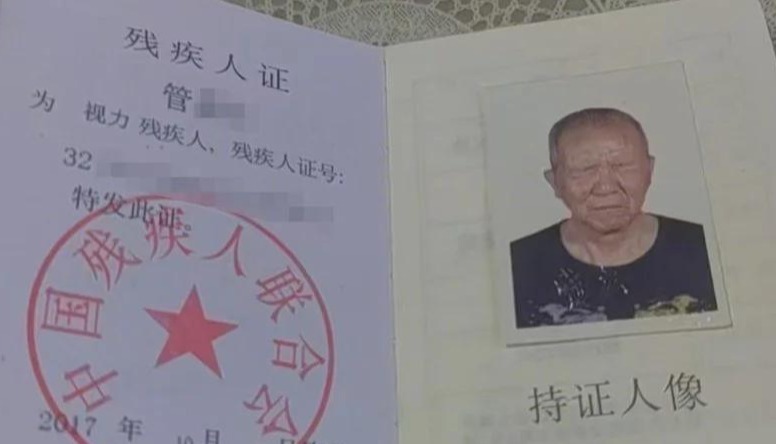 残疾人证
管
为 视力 残疾人，残疾人证号：
32
特发此证。
中国残疾人联合会
2017 年 10月
持证人像